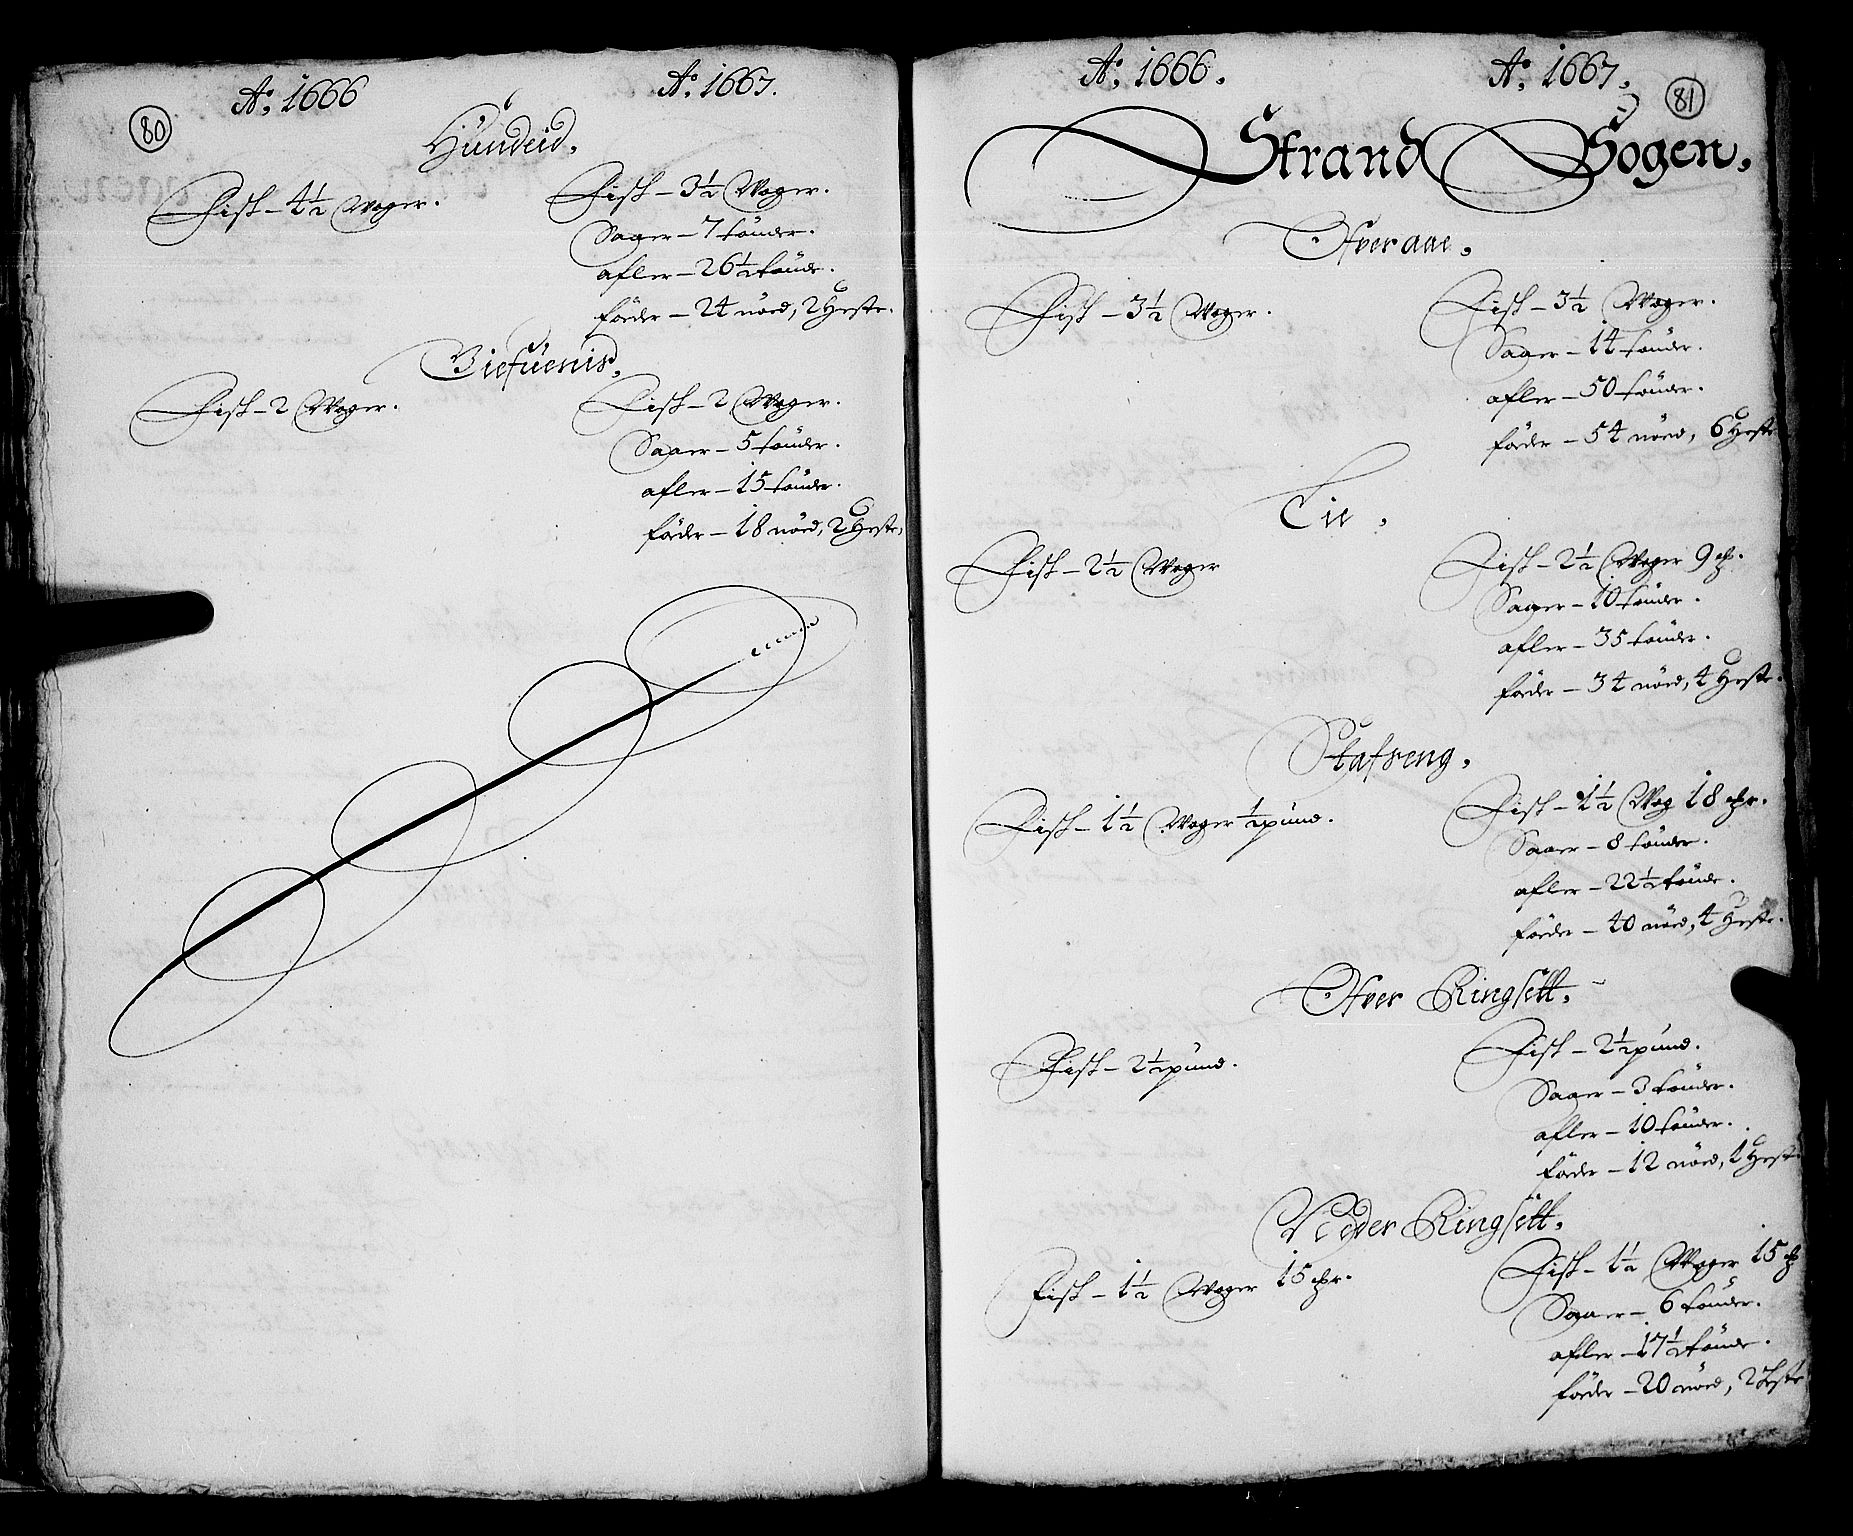 80
Aº. 1666
Aº. 1667.
Hündeid.
Fisk – 4½ Woger.
Fisk – 3½ Woger.
Saaer – 7 tönder.
afler – 26½ tönde.
föeder – 24 nöed, 2 Heste.
Biefuenis.
Fisk – 2 Woger.
Fisk – 2 Woger.
Saaer – 5 tönder.
afler – 15 tönder.
föeder – 18 nöed, 2 Heste.
Aº. 1666.
Aº. 1667.
81
Strand Sogen.
Ofveraae.
Fisk – 3½ Woger.
Fisk – 3½ Woger.
Saaer – 14 tönder.
afler – 50 tönder.
föeder – 54 nöed, 6 Heste
Lie.
Fisk – 2½ Woger
Fisk – 2½ Woger 9 ℔.
Saaer – 10 tönder.
afler – 35 tönder.
föeder – 34 nöed, 4 Heste.
Stafseng.
Fisk – 1½ Woger ½ pund.
Fisk – 1½ Wog 18 ℔r.
Saaer – 8 tönder.
afler – 22½ tönde.
föeder – 40 nöed, 4 Heste.
Ofver Ringsett.
Fisk – 2½ pund.
Fisk – 2½ pund.
Saaer – 3 tönder.
afler – 10 tönder.
föeder – 12 nöed, 1 Hest
Neder Ringsett.
Fisk – 1½ Woger 15 ℔r.
Fisk – 1½ Woger 15 ℔
Saaer – 6 tönder.
afler – 17½ tönde.
föeder – 20 nöed, 2 Heste